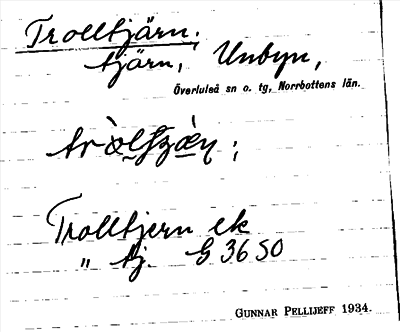 Trolltjärn;
tjärn, Unbyn,
Överluleå sn o. tg, Norrbottens län.
Trolltjern ek
" tj. G 36 SO
GUNNAR PELLIJEFF 1934.